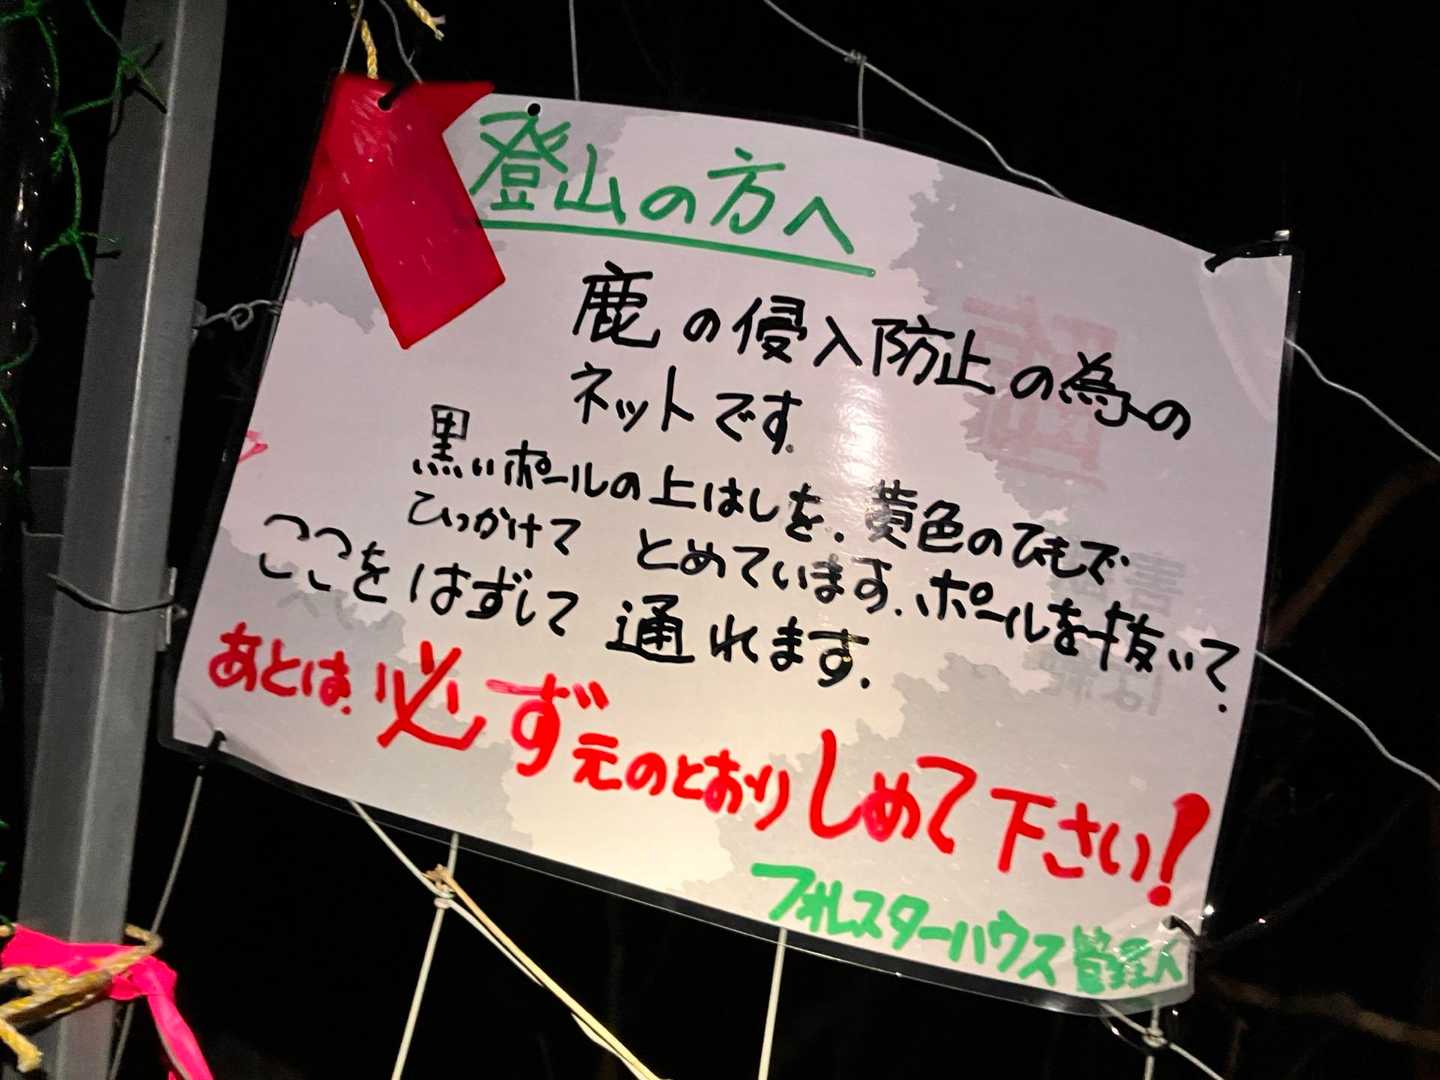 登山の方へ
鹿の侵入防止の為の
ネットです.
黒いポールの上はしを.黄色のひもで
ひっかけて とめています.ポールを抜いて.
ここをはずして 通れます.
あとは.必ず元のとおりしめて下さい!
フォレスターハウス管理人